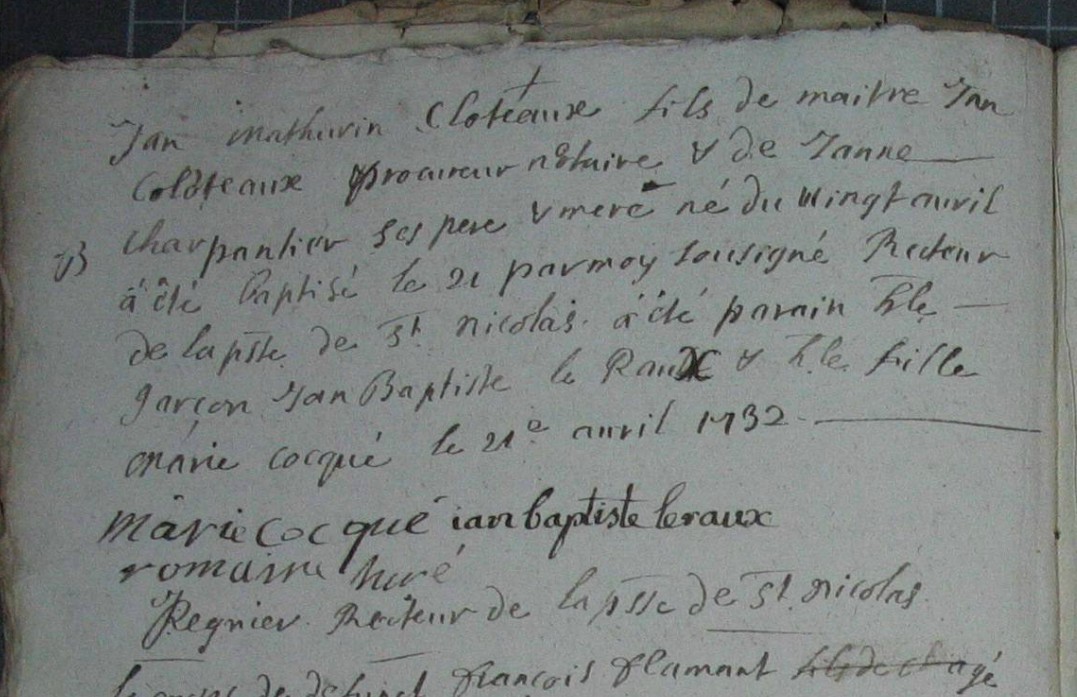 Jan mathurin Cloteaux fils de maitre Jan
Coloteaux procureur notaire & de Janne
B charpantier ses pere & mere né du vingt avril
à été baptisé le 21 par moy sousigné Recteur
de la psse de St nicolas. à été parain hle
garçon Jan Baptiste le Raux & h.le fille
marie cocqué le 21e avril 1732
marie cocqué ian baptiste leraux
romaine huré
Regnier Recteur de la psse de St. nicolas
le corps de defunct françois flamant fils de agé